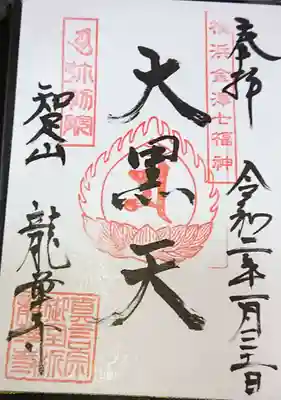 奉拝
令和二年一月三十一日
横浜金澤七福神
大黒天
弥勒院
知足山
龍華寺
真言宗